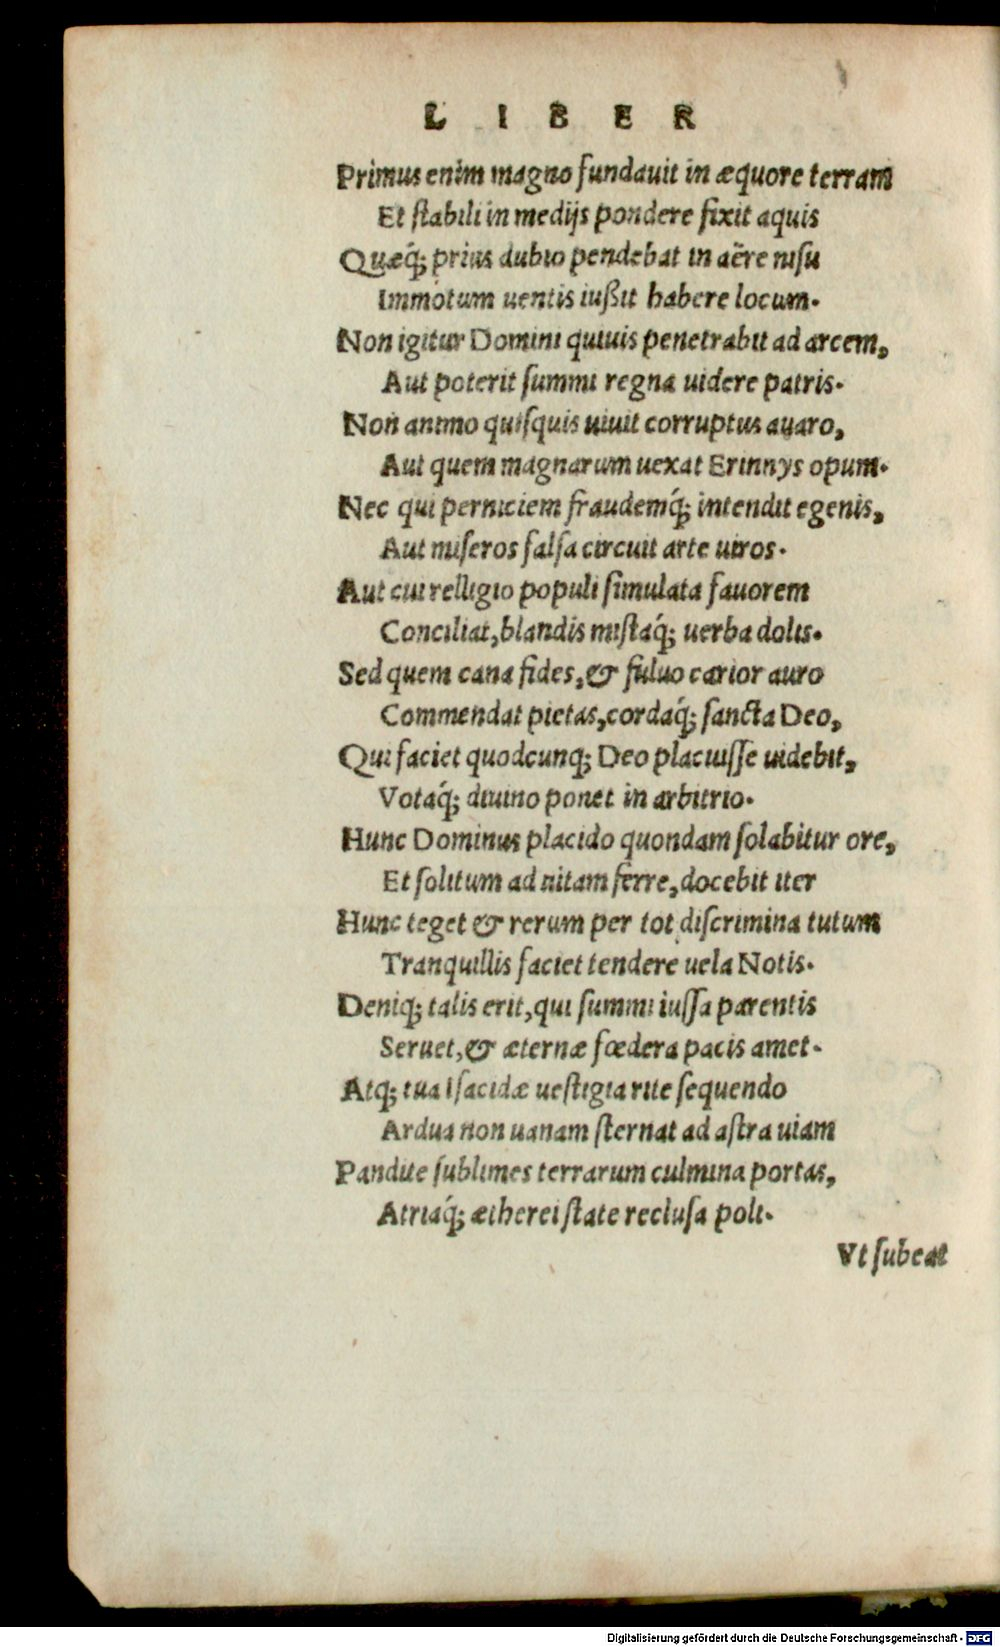 L I B E R
Primus enim magno fundauit in æquore terram
Et ſtabili in medijs pondere fixit aquis
Quæq́; prius dubio pendebat in aëre niſu
Immotum uentis iußit habere locum.
Non igitur Domini quiuis penetrabit ad arcem,
Aut poterit ſummi regna uidere patris.
Non animo quiſquis uiuit corruptus auaro,
Aut quem magnarum uexat Erinnys opum.
Nec qui perniciem fraudemq́; intendit egenis,
Aut miſeros falſa circuit arte uiros.
Aut cui relligio populi ſimulata fauorem
Conciliat, blandis miſtaq́; uerba dolis.
Sed quem cana fides, & fuluo carior auro
Commendat pietas, cordaq́; ſancta Deo,
Qui faciet quodcunq; Deo placuiſſe uidebit,
Votaq́; diuino ponet in arbitrio.
Hunc Dominus placido quondam ſolabitur ore,
Et ſolitum ad uitam ferre, docebit iter
Hunc teget & rerum per tot diſcrimina tutum
Tranquillis faciet tendere uela Notis.
Deniq; talis erit, qui ſummi iuſſa parentis
Seruet, & æternæ fœdera pacis amet.
Atq; tua Iſacidæ ueſtigia rite ſequendo
Ardua non uanam ſternat ad aſtra uiam
Pandite ſublimes terrarum culmina portas,
Atriaq́; ætherei ſtate recluſa poli.
Vt ſubeat
Digitalisierung gefördert durch die Deutsche Forschungsgemeinschaft - DFG